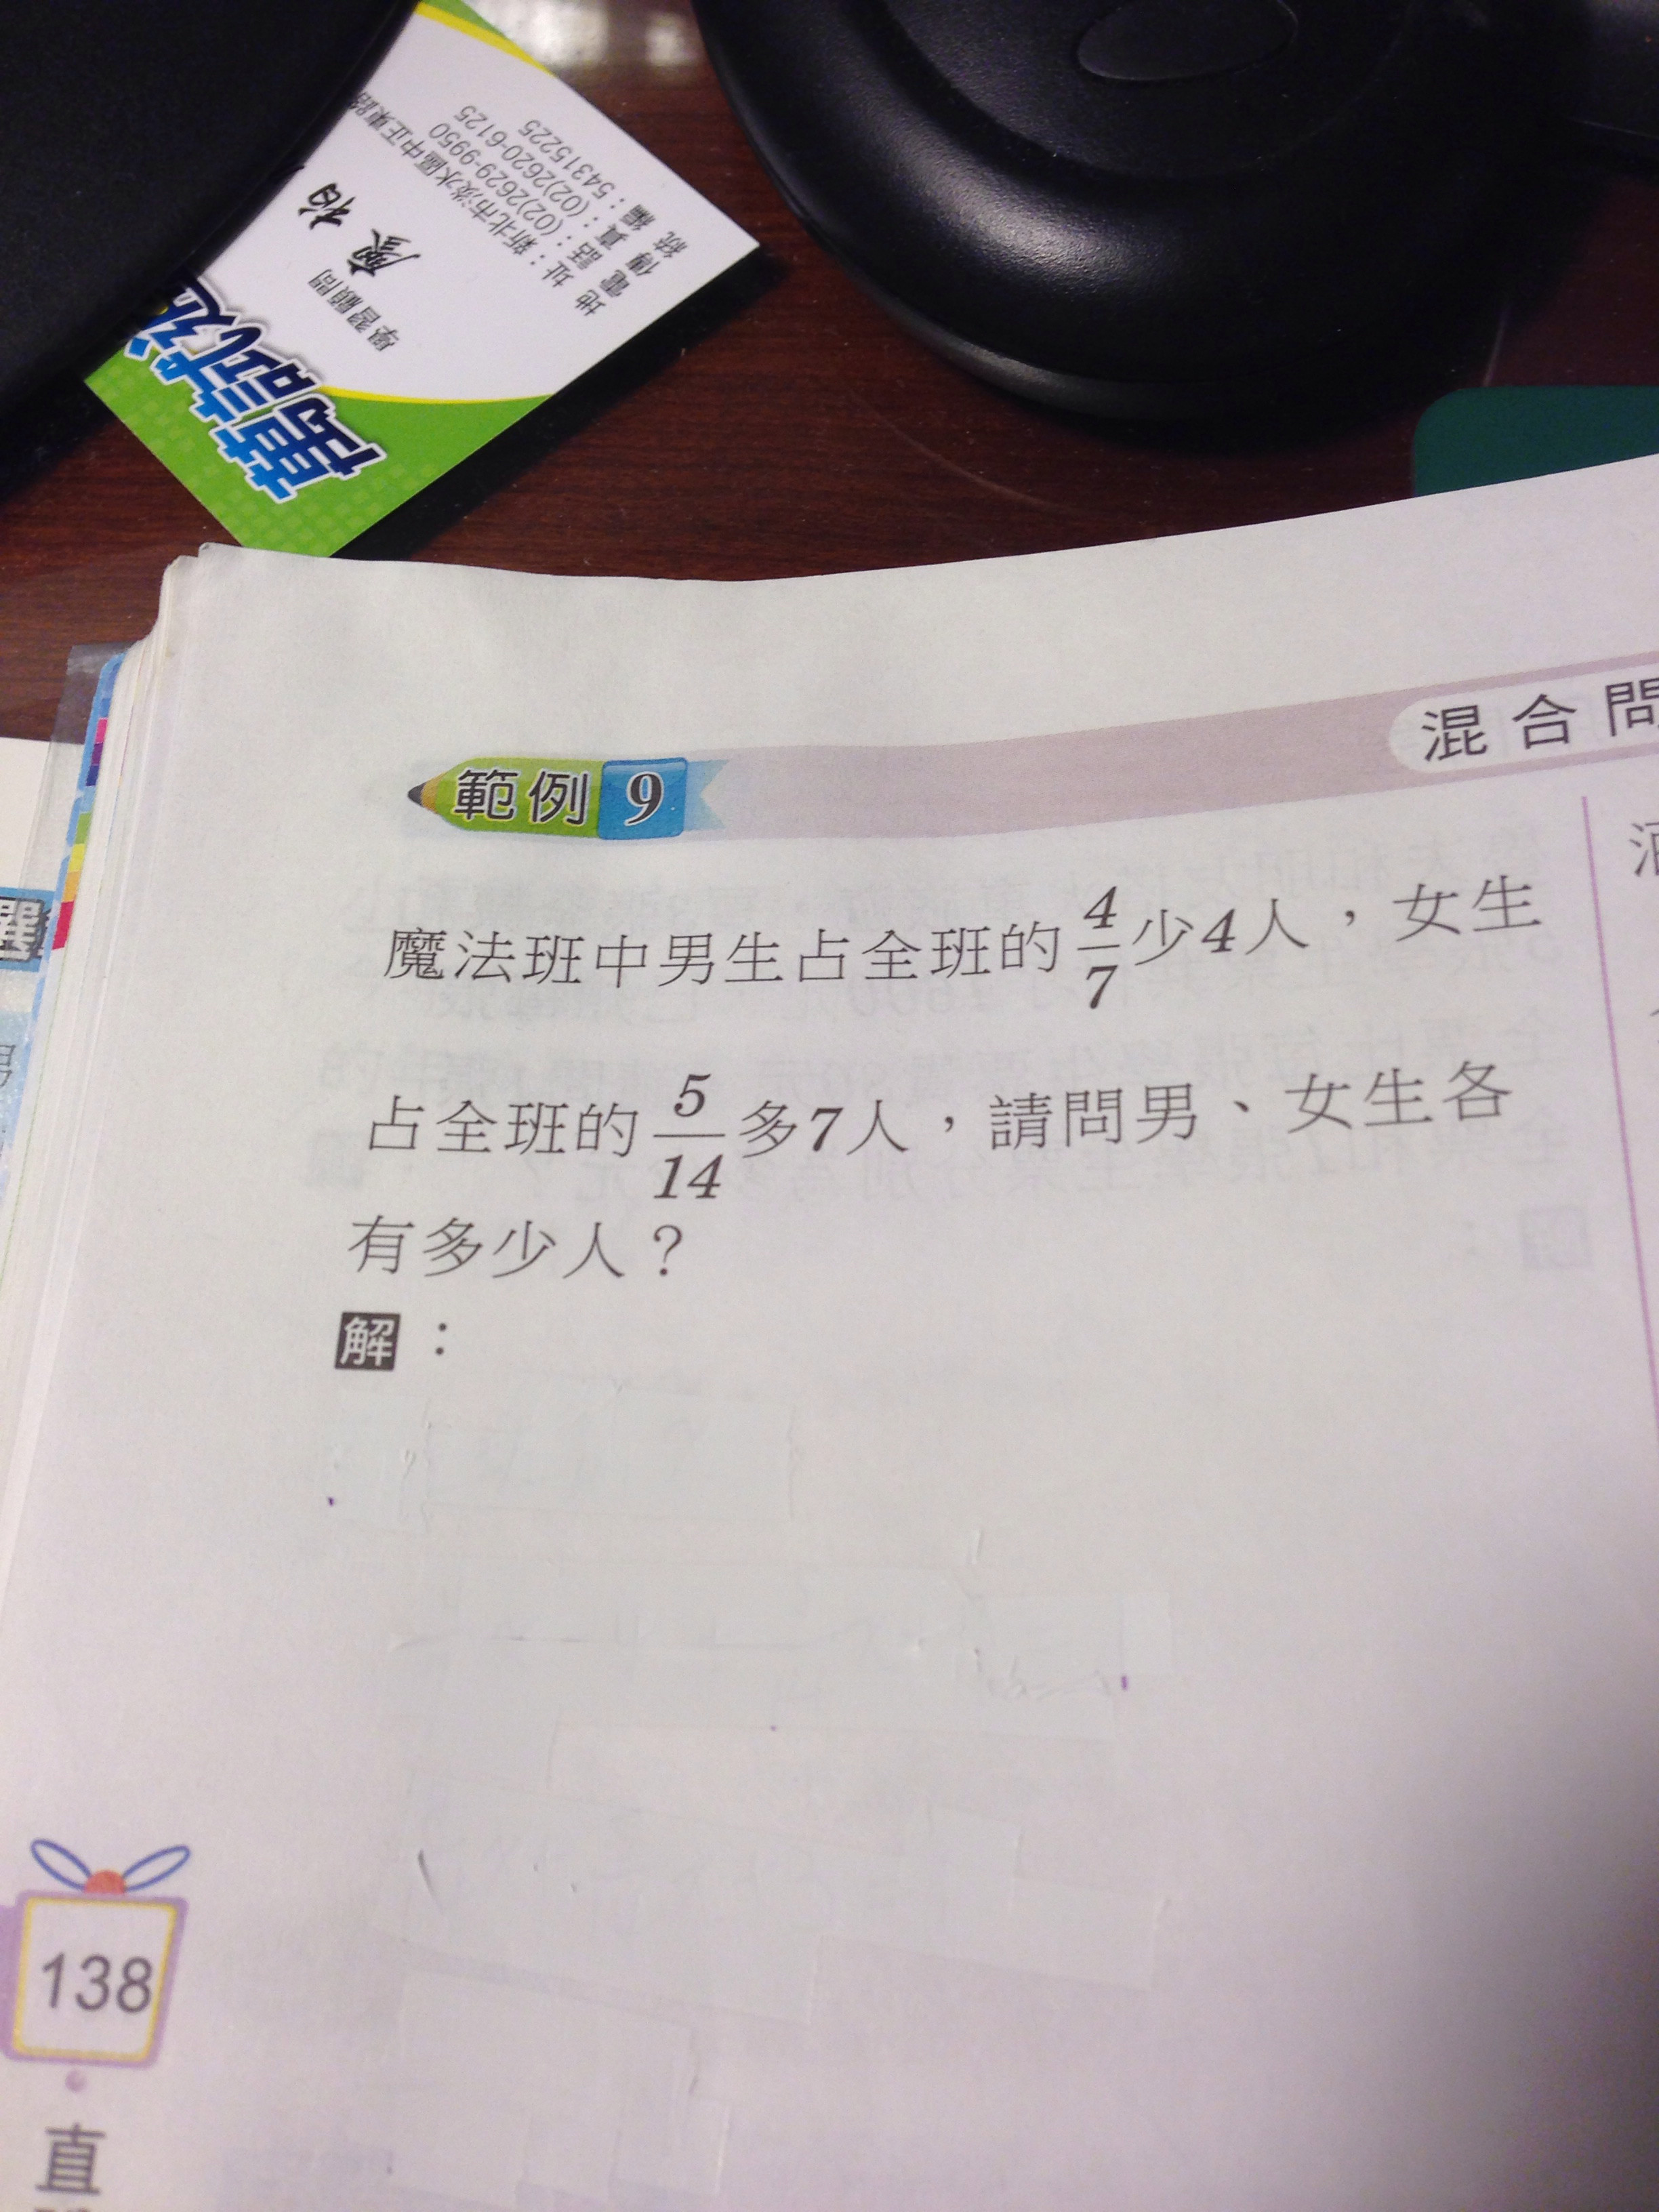 萬試通
學習顧問
廖柏
地 址：新北市淡水區中正東路
電 話：(02)2629-9950
傳 真：(02)2620-6125
統 編：54315225
範例 9
混合問
魔法班中男生占全班的4/7少4人，女生
占全班的5/14多7人，請問男、女生各
有多少人？
解：
138
直